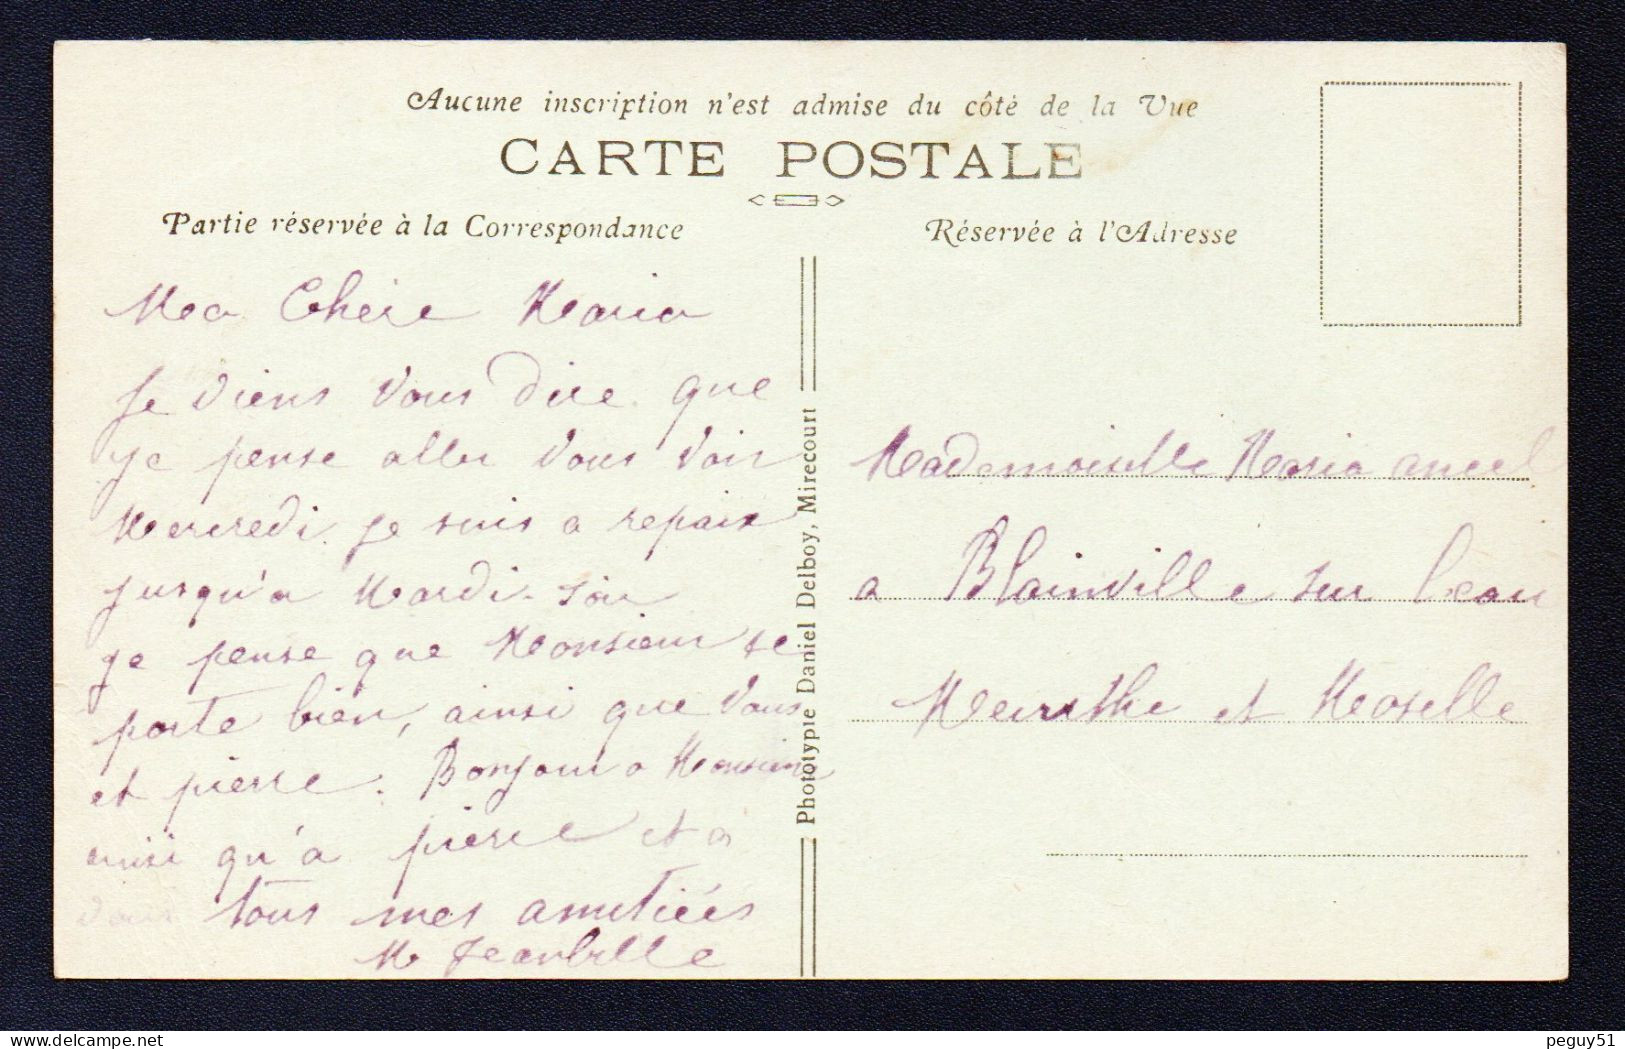 Aucune inscription n'est admise du côté de la Vue
CARTE POSTALE
Partie réservée à la Correspondance
Réservée à l'Adresse
Ma Chère Maria
Je viens vous dire que
je pense aller vous voir
Mercredi. Je suis a repaix
jusqu'a Mardi-soir
je pense que Monsieur se
porte bien, ainsi que vous
et pierre. Bonjour a Monsieur
ainsi qu'a pierre et a
vous tous mes amitiées
M Jeanbelle
Phototypie Daniel Delboy, Mirecourt
Mademoiselle Maria ancel
a Blainville sur l'eau
Meurthe et Moselle
peguy51